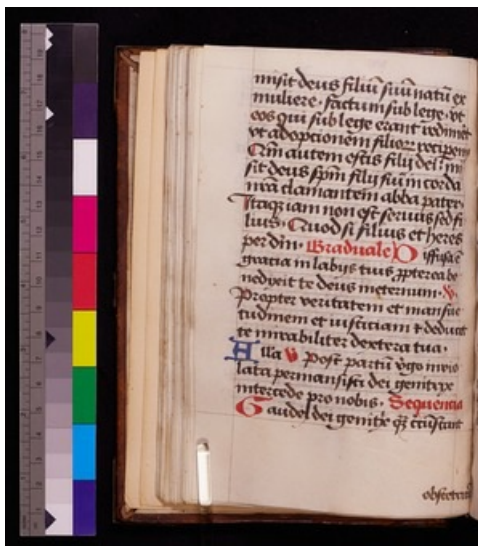 misit deus filiū suū natū ex
muliere · factum sub lege · vt
eos qui sub lege erant redimēt
vt adopcionem filiorꝝ recipem
Qm̄ autem estis filij dei · mi
sit deus sp̄m filij sui in corda
nr̄a clamantem abba pater ·
Itaqꝫ iam non est seruus sed fi
lius · Quod si filius et heres
per dm̄ · Graduale Diffusa ē
gracia in labijs tuis ꝓpterea be
nedixit te deus in eternum · v̄
Propter veritatem et mansue
tudinem et iusticiam ⁊ deducet
te mirabiliter dextera tua ·
Alla v̄ Post partū v̓go invio
lata permansisti dei genitrix
intercede pro nobis · Sequencia
Gaude dei genitx̓ qꝫ
obsetricū